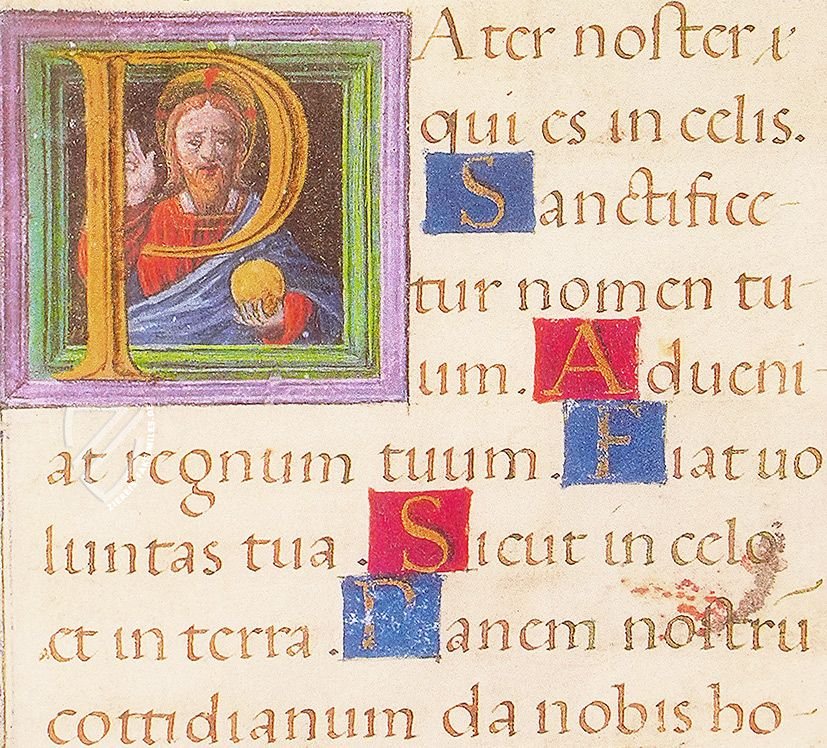 Pater noſter
qui es in celis.
Sanctifice-
tur nomen tu-
um. Adueni-
at regnum tuum. Fiat uo
luntas tua. Sicut in celo
et in terra. Panem noſtrū
cottidianum da nobis ho-